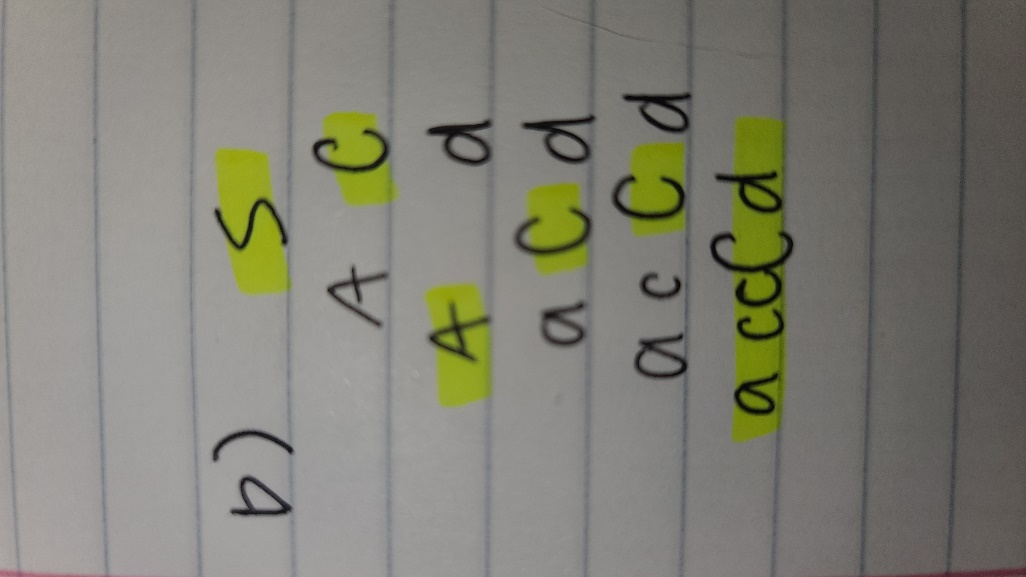 b) S
A C
A d
a C d
a c C d
a ccCd